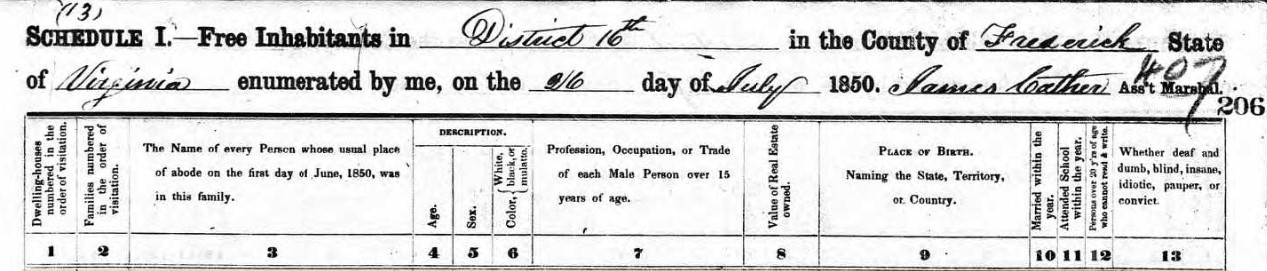 (13)
SCHEDULE I.—Free Inhabitants in District 16th in the County of Frederick State
of Virginia enumerated by me, on the 26 day of July 1850. James Cather Ass't Marshal.
407
206
Dwelling-houses numbered in the order of visitation.
Families numbered in the order of visitation.
The Name of every Person whose usual place
of abode on the first day of June, 1850, was
in this family.
DESCRIPTION.
Age.
Sex.
Color, White, black, or mulatto.
Profession, Occupation, or Trade
of each Male Person over 15
years of age.
Value of Real Estate owned.
PLACE OF BIRTH.
Naming the State, Territory,
or Country.
Married within the year.
Attended School within the year.
Persons over 20 y'rs of age who cannot read & write.
Whether deaf and
dumb, blind, insane,
idiotic, pauper, or
convict.
1 2 3 4 5 6 7 8 9 10 11 12 13